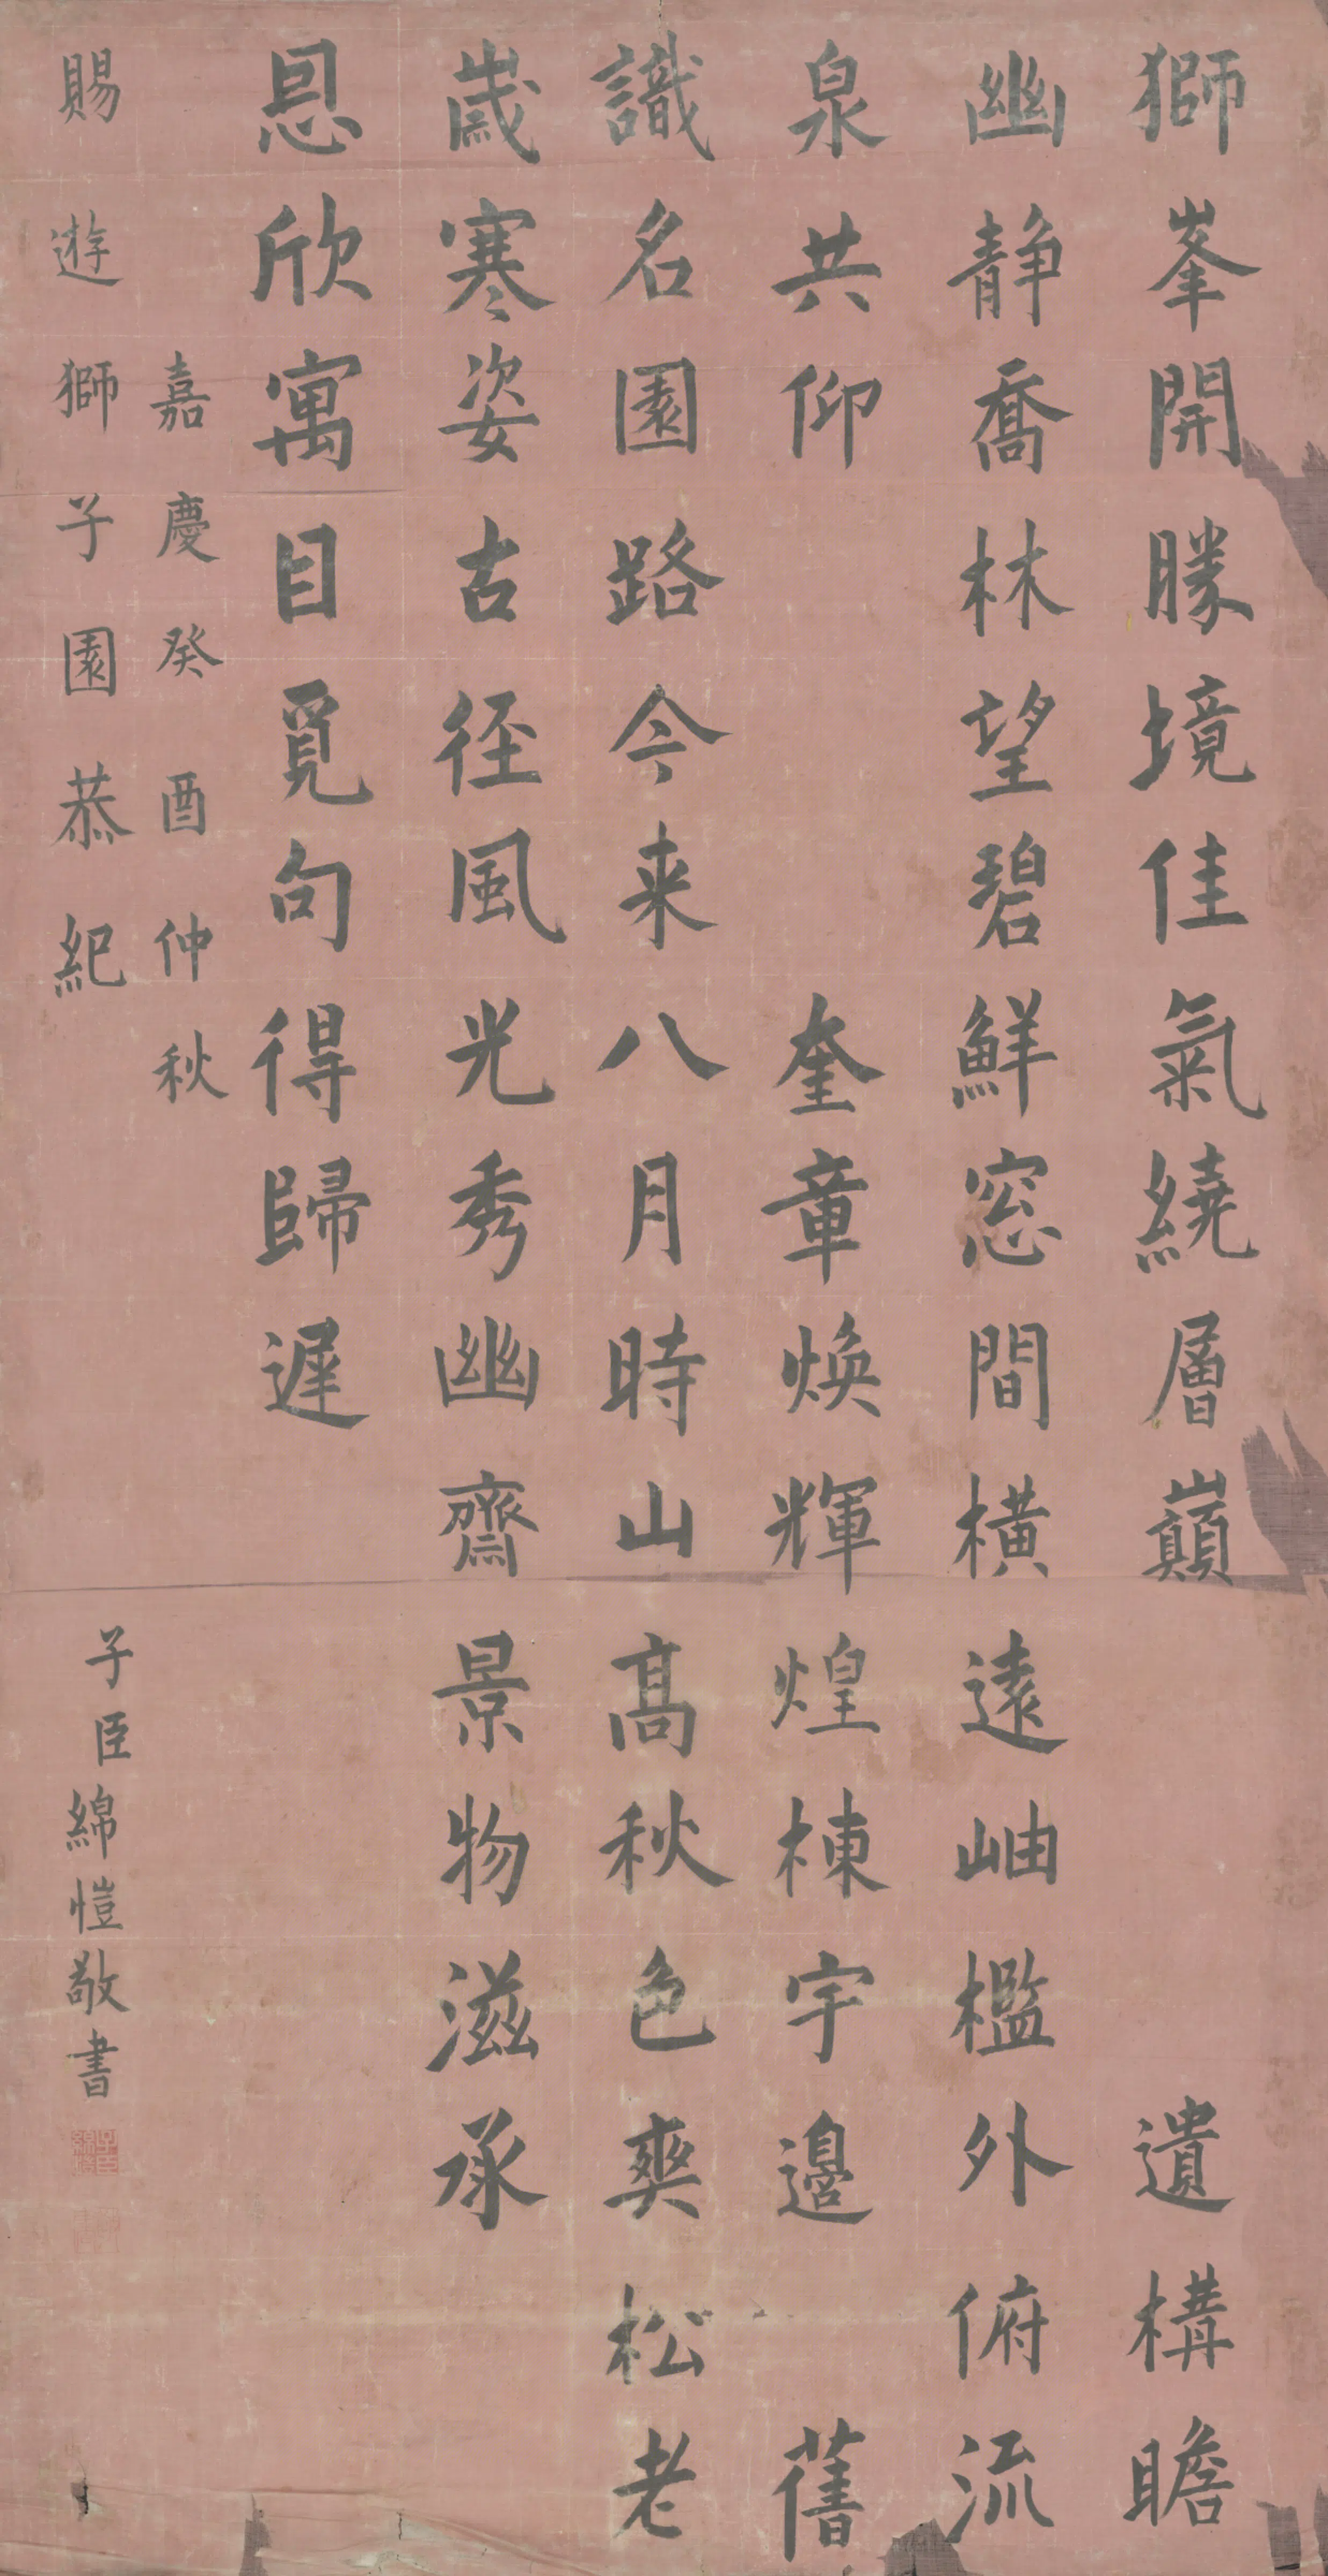 獅峯開勝境佳氣繞層巔 遺構瞻
幽静喬林望碧鮮窓間橫遠岫檻外俯流
泉共仰 奎章煥輝煌棟宇邉 舊
識名園路今来八月時山髙秋色爽松老
歲寒姿古徑風光秀幽齋景物滋承
恩欣寓目覓句得歸遲
嘉慶癸酉仲秋
賜遊獅子園恭紀
子臣綿愷敬書